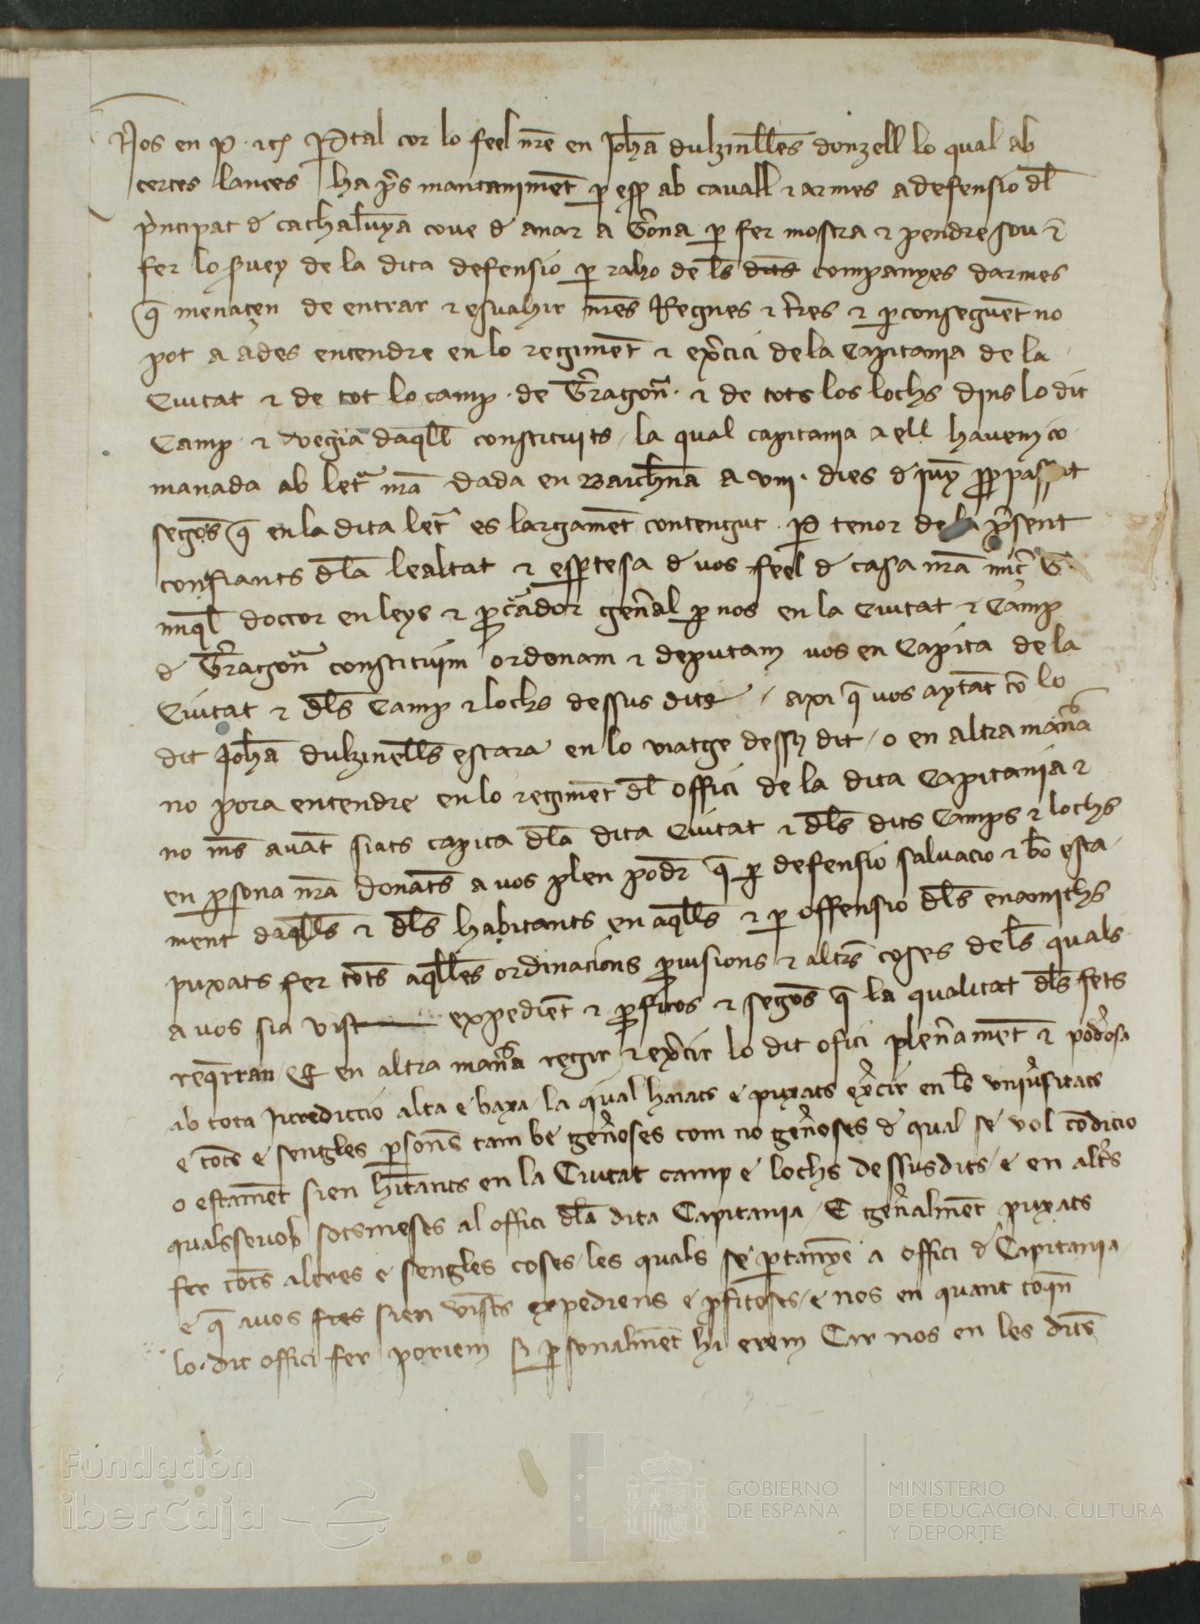 Nos en P. etc. Per tal cor lo feel nre en Johã dulzinelles donzell lo qual ab
certes lances ha pres mantenimẽt p esp ab cavall e armes a defensio dl
principat d cathalunya cove d anar a Gerona p fer mostra e pendre sou e
fer lo servey de la dita defensio p raho de ls dits companyes darmes
q menaçen de entrar e esvahir nres Regnes e tres e p conseguẽt no
pot a ades entendre en lo regimẽt e exercici de la Capitania de la
Ciutat e de tot lo camp de Terragona e de tots los lochs dins lo dit
Camp e vegia daqll constituits la qual capitania a ell havem co
manada ab letra nra dada en Barchna a viii dies d juny pp passat
segons q en la dita letra es largamẽt contengut Per tenor de la present
confiants dla lealtat e espertesa d vos feel d casa nra micer G.
miqł doctor en leys e procurador general p nos en la Ciutat e Camp
d Terragona constituim ordonam e deputam vos en Capita de la
Ciutat e dls Camp e lochs dessus dits axi q vos aytãt cõ lo
dit Johã dulzinells estara en lo viatge dessus dit o en altra manera
no pora entendre en lo regimẽt dl offici de la dita Capitania e
no mes avãt siats capita dla dita Ciutat e dls dits Camps e lochs
en persona nra donãts a vos plen poder q p defensio salvacio e bõ esta
ment daqlls e dls habitants en aqlls e p offensio dls enamichs
puxats fer tots aqlles ordinacions provisions e altres coses de ls quals
a vos sia vist expediẽt e profitos e segons q la qualitat dls fets
reqrran E en altra manera regir e exercir lo dit ofici plenerament e poderosa
ab tota jurediccio alta e baxa la qual hajats e puxats exercir en ls universitats
e tots e sengles persones tam be generoses com no generoses d qual se vol cõdicio
o estamẽt sien hitants en la Ciutat camp e lochs dessus dits e en altres
qualssevol sotsmeses al offici dla dita Capitania E generalmẽt puxats
fer tots altres e sengles coses les quals se ptanyẽ a offici d Capitania
e q a vos fets sien vists expediens e profitoses e nos en quant toqn
lo dit offici fer poriem si personalmẽt hi erem Car nos en les dits
Fundación
iberCaja
GOBIERNO
DE ESPAÑA
MINISTERIO
DE EDUCACIÓN, CULTURA
Y DEPORTE